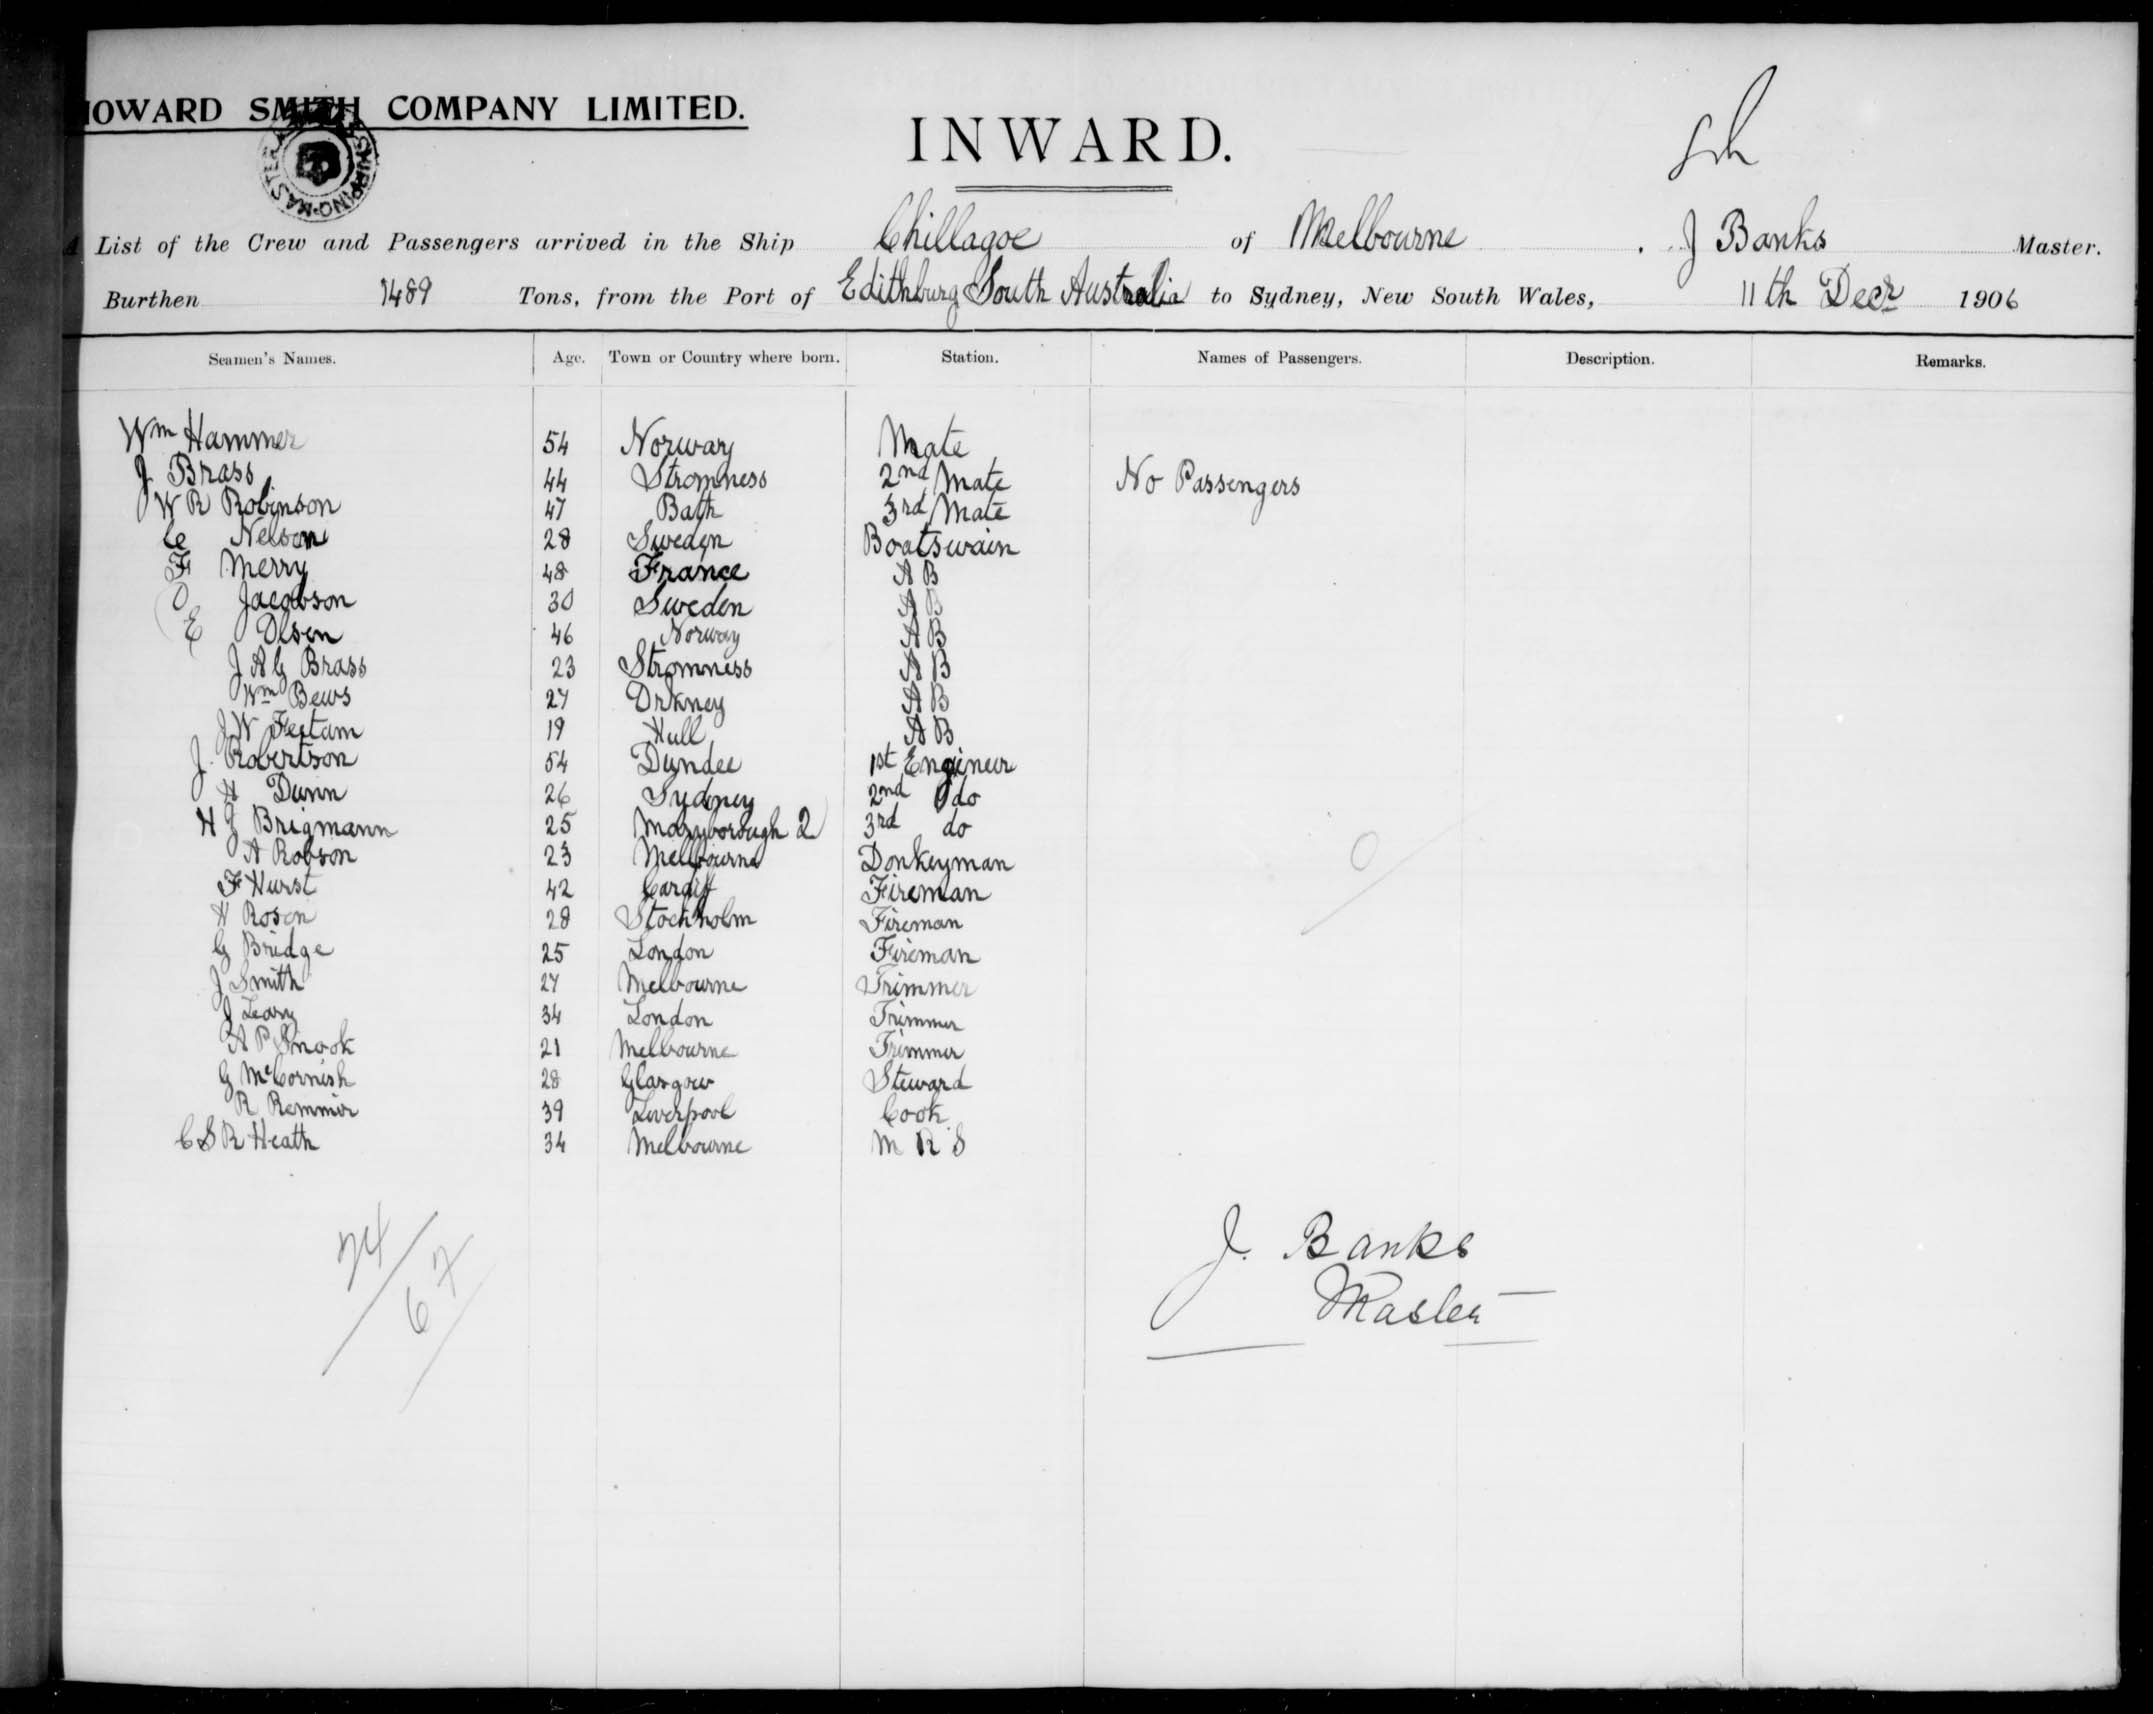 HOWARD SMITH COMPANY LIMITED.
SHIPPING MASTER
INWARD.
A List of the Crew and Passengers arrived in the Ship Chillagoe of Melbourne, J Banks Master.
Burthen 1489 Tons, from the Port of Edithburg South Australia to Sydney, New South Wales, 11th Decr 1906
Seamen's Names. Age. Town or Country where born. Station. Names of Passengers. Description. Remarks.
Wm Hammer 54 Norway Mate
J Brass 44 Stromness 2nd Mate No Passengers
W R Robinson 47 Bath 3rd Mate
C Nelson 28 Sweden Boatswain
F Merry 48 France A B
O Jacobson 30 Sweden A B
E Olsen 46 Norway A B
J A G Brass 23 Stromness A B
Wm Bews 27 Orkney A B
J W Feetam 19 Hull A B
J. Robertson 54 Dundee 1st Engineer
H Dunn 26 Sydney 2nd do
H J Brigmann 25 Maryborough Q 3rd do
A Robson 23 Melbourne Donkeyman
F Hurst 42 Cardiff Fireman
H Rosen 28 Stockholm Fireman
G Bridge 25 London Fireman
J Smith 27 Melbourne Trimmer
J Leary 34 London Trimmer
A P Snook 21 Melbourne Trimmer
G McCornish 28 Glasgow Steward
R Remmir 39 Liverpool Cook
C S R Heath 34 Melbourne M R S
24
67
J. Banks
Master